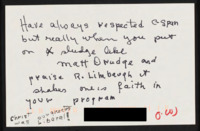 Have always respected c-span
but really when you put
on a sludge like
Matt Drudge and
praise R. Limbaugh it
shakes one's faith in
your program
Christ
was
liberal!